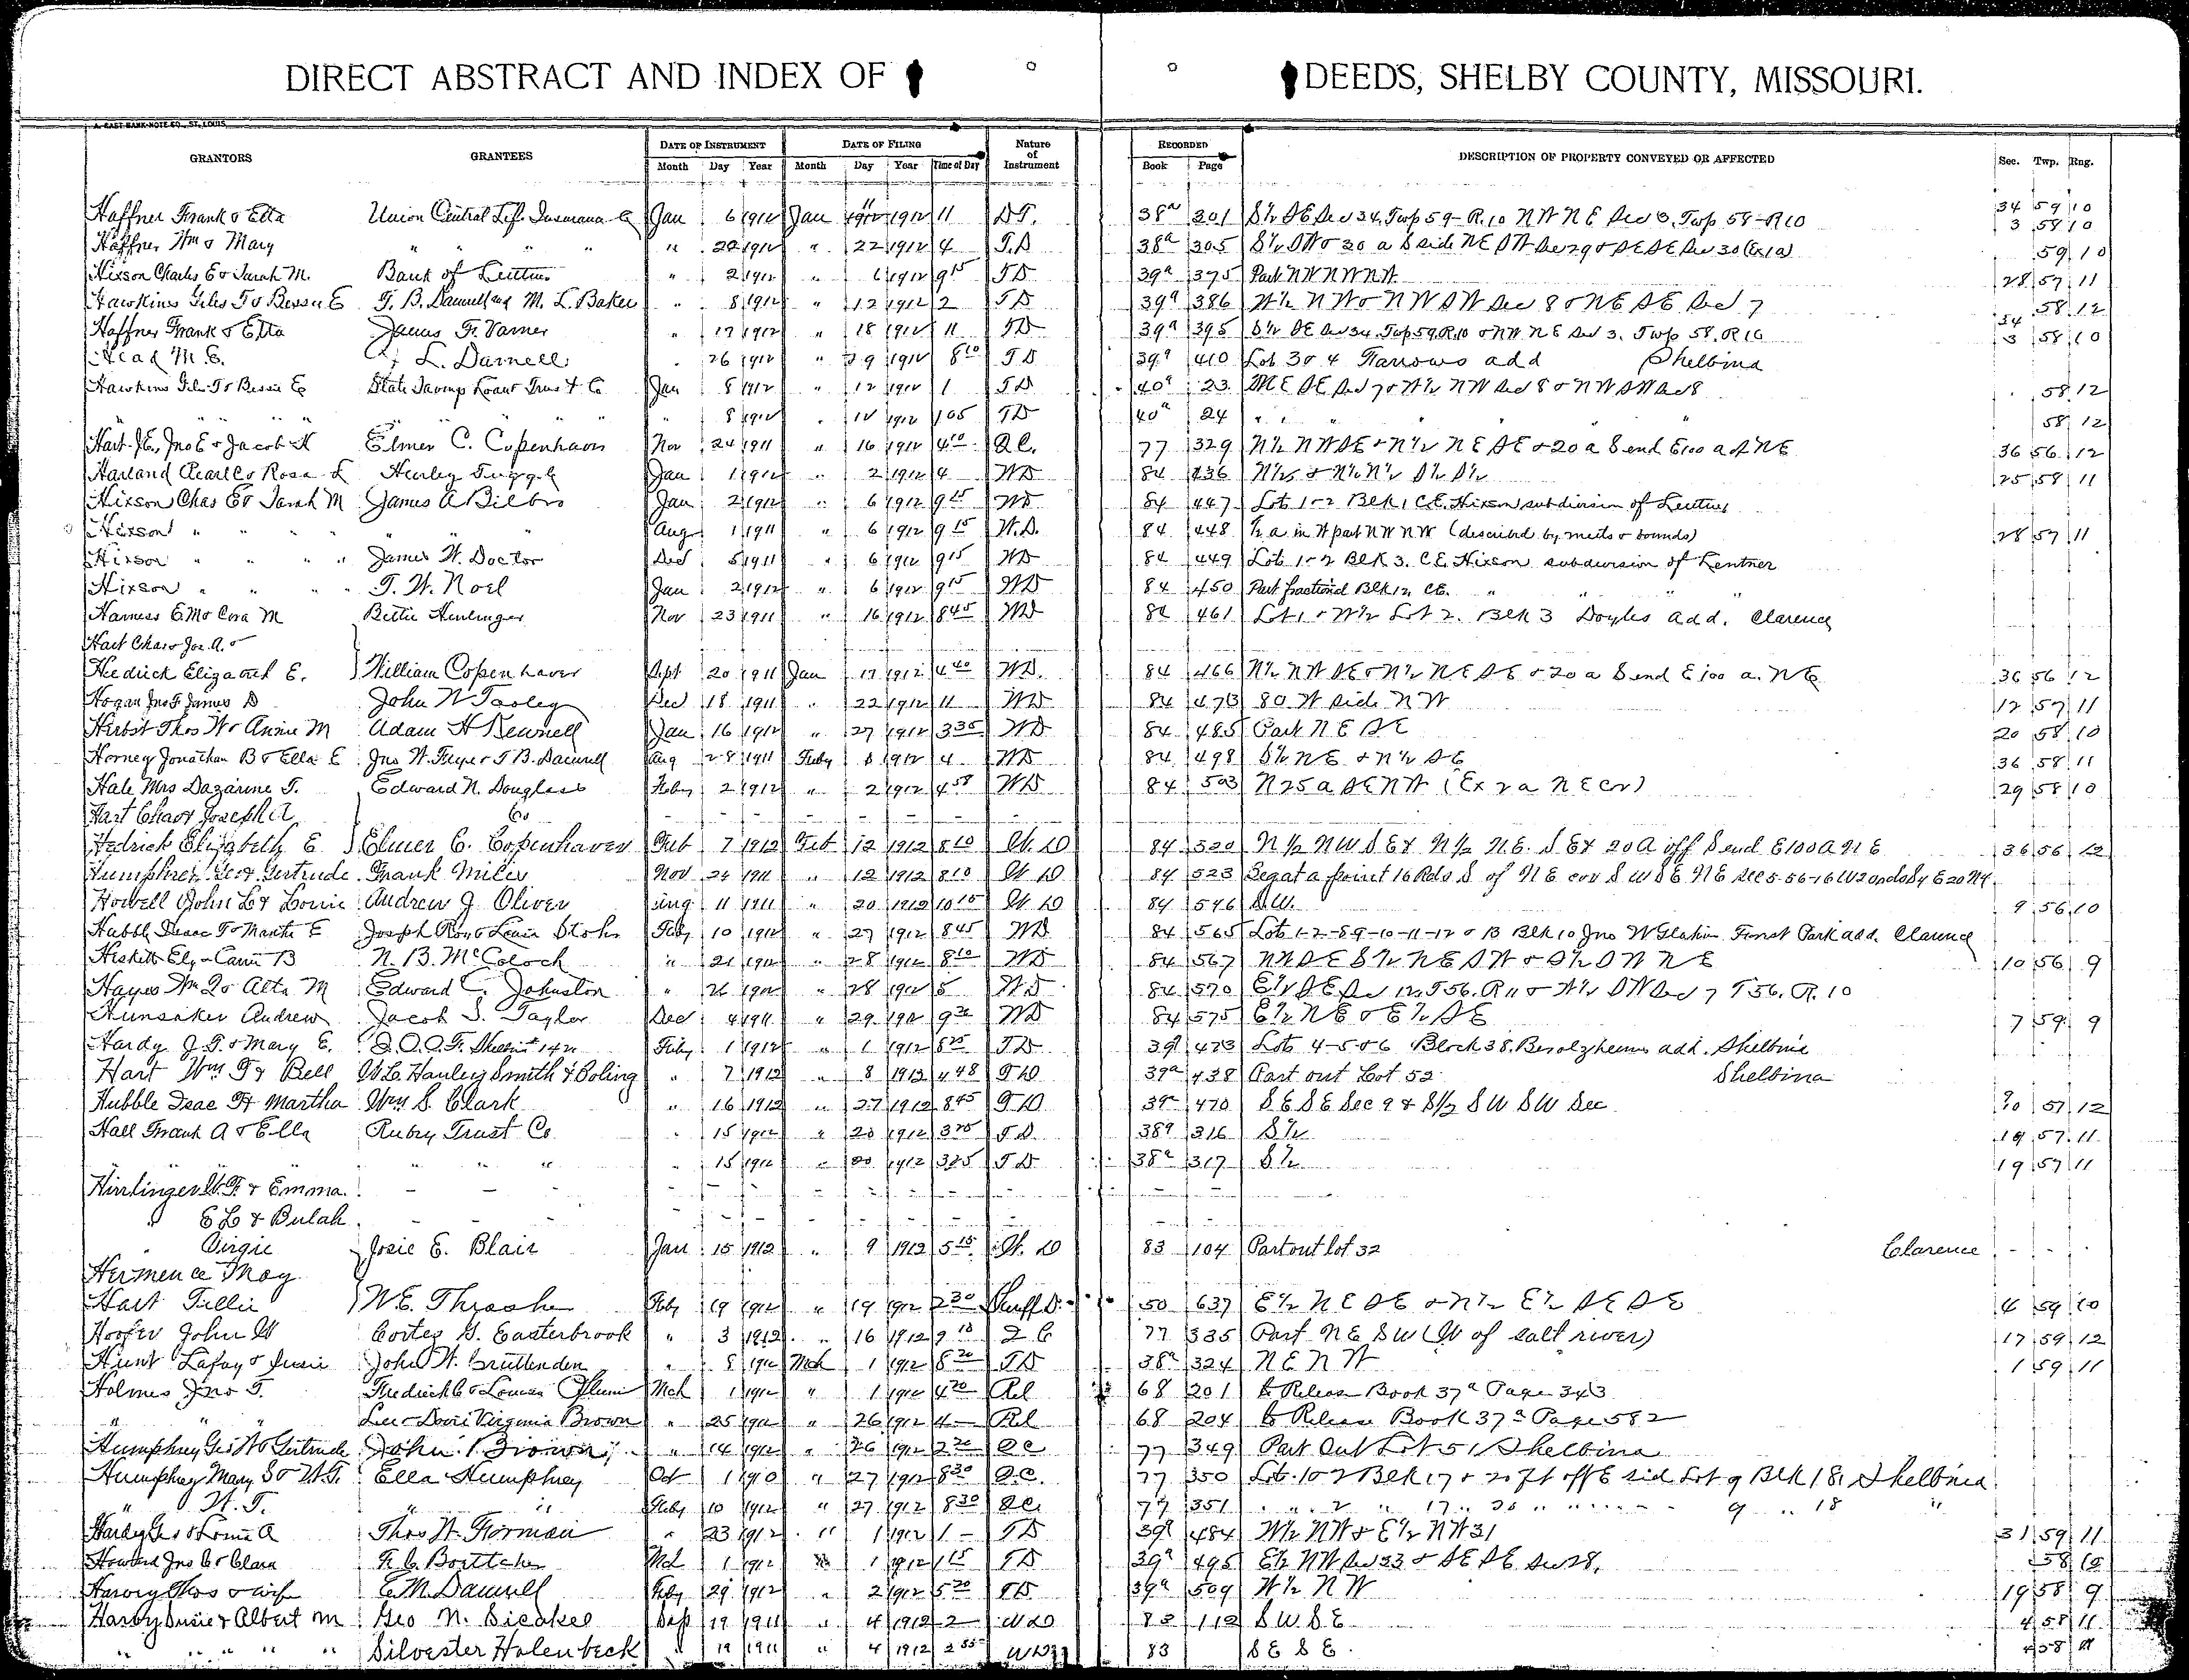 DIRECT ABSTRACT AND INDEX OF DEEDS, SHELBY COUNTY, MISSOURI.
GRANTORS GRANTEES DATE OF INSTRUMENT DATE OF FILING Nature of Instrument RECORDED DESCRIPTION OF PROPERTY CONVEYED OR AFFECTED Sec. Twp. Rng.
Month Day Year Month Day Year Time of Day Book Page
Haffner Frank & Etta Union Central Life Insurance Co Jan 6 1912 Jan 1912 11 D.T. 38a 301 S½ SE Sec 34. Twp 59-R.10 NW NE Sec 3. Twp 58-R10 34 59 10
3 58 10
Haffner Wm & Mary " " " " " 22 1912 " 22 1912 4 T.D 38a 305 S½ SW & 20 a S side NE SW Sec 29 & SE SE Sec 30 (Ex 1a) 59 10
Hixson Charles E & Sarah M. Bank of Lentner " 2 1912 " 6 1912 9 15 TD 39a 375 Part NW NW NW 28 57 11
Hawkins Giles T & Bessie E T. B. Damrell and M. L. Baker " 8 1912 " 12 1912 2 TD 39a 386 W½ NW & NW SW Sec 8 & NE SE Sec 7 58 12
Haffner Frank & Etta James F. Varner " 17 1912 " 18 1912 11 TD 39a 395 S½ SE Sec 34. Twp 59. R10 & NW NE Sec 3. Twp 58. R10 34
3 58 10
Head M. E. L. Darnell " 26 1912 " 29 1912 8 10 TD 39a 410 Lot 3 & 4 Farrows add Shelbina
Hawkins Giles T & Bessie E State Savings Loan & Trust Co Jan 8 1912 " 12 1912 1 TD 40a 23 NE SE Sec 7 & W½ NW Sec 8 & NW SW Sec 8 58 12
" " " " " " " " 8 1912 " 12 1912 1 05 TD 40a 24 " " " " 58 12
Hart J.E., Jno E & Jacob H Elmer C. Copenhaver Nov 24 1911 " 16 1912 4 10 Q.C. 77 329 N½ NW SE & N½ NE SE & 20 a S end E 100 a of NE 36 56 12
Harland Pearl & Rosa L Hurley Tuggle Jan 1 1912 " 2 1912 4 WD 84 436 N½ S & N½ N½ S½ S½ 25 58 11
Hixson Chas E & Sarah M James A Bilbro Jan 2 1912 " 6 1912 9 15 WD 84 447 Lots 1-2 Blk 1 C.E. Hixson subdivision of Lentner
Hixson " " " " " Aug 1 1911 " 6 1912 9 15 W.D. 84 448 ½ a in W part NW NW (described by meets & bounds) 28 57 11
Hixson " " " " James W. Doctor Dec 5 1911 " 6 1912 9 15 WD 84 449 Lots 1-2 Blk 3. C.E. Hixson subdivision of Lentner
Hixson " " " " T. W. Noel Jan 2 1912 " 6 1912 9 15 WD 84 450 Part fractional Blk 12 CE. " " "
Harness E.M & Cora M Bettie Hirrlinger Nov 23 1911 " 16 1912 8 45 WD 84 461 Lot 1 & W½ Lot 2. Blk 3 Doyles add. Clarence
Hart Chas & Jos. A. &
Hedrick Elizabeth E. William Copenhaver Sept 20 1911 Jan 17 1912 4 40 WD. 84 466 N½ NW SE & N½ NE SE & 20 a S end E 100 a. NE 36 56 12
Hogan Jno & James D John W Tooley Dec 18 1911 " 22 1912 11 WD 84 473 80 W side NW 12 57 11
Herbst Thos W & Annie M Adam H Kewnell Jan 16 1912 " 27 1912 3 35 WD 84 485 Part NE SE 20 58 10
Horney Jonathan B & Ella E Jno W. Freye & T B. Damrell Aug 28 1911 Feby 1 1912 4 WD 84 498 S½ NE & N½ SE 36 58 11
Hale Mrs Dazarine T. Edward N. Douglass Feby 2 1912 " 2 1912 4 58 WD 84 503 N 25 a SE NW (Ex 2 a N E cor) 29 58 10
Hart Chas & Joseph A Co
Hedrick Elizabeth E Elmer C. Copenhaver Feb 7 1912 Feb 12 1912 8 10 W. D 84 520 N ½ NW S E & N ½ N.E. S E & 20 A off S end E 100 A N E 36 56 12
Humphrey Geo & Gertrude Frank Miles Nov 24 1911 " 12 1912 8 10 W D 84 523 Beg at a point 16 Rds S of NE cor S W S E NE Sec 5-56-16 W 20 rds S 4 E 20 N 4
Howell John L & Lonie Andrew J Oliver Aug 11 1911 " 20 1912 10 15 W. D 84 546 S.W. 9 56 10
Hubble Isaac T & Martha E Joseph Roy & Louis Stohr Feby 10 1912 " 27 1912 8 45 WD 84 565 Lots 1-2-8-9-10-11-12 & 13 Blk 10 Jno W Glahn Forest Park add. Clarence
Heskitt Ely & Carrie B N. B. McColoch " 21 1912 " 28 1912 8 10 WD 84 567 NW SE S½ NE SW & S½ SW NE 10 56 9
Hayes Wm Q & Alta M Edward C. Johnston " 26 1912 " 28 1912 5 WD 84 570 E½ SE Sec 12. T56. R 11 & W½ SW Sec 7 T56. R. 10
Hunsaker Andrew Jacob S. Taylor Dec 4 1911 " 29 1912 9 30 WD 84 575 E½ NE & E½ SE 7 59 9
Hardy J. T. & Mary E. I.O.O.F. Shelbina 142 Feby 1 1912 " 1 1912 8 25 TD 39a 423 Lots 4-5 & 6 Block 38. Benolzheims add. Shelbina
Hart Wm T & Bell W.C. Hanley Smith & Boling " 7 1912 " 8 1912 4 48 T D 39a 438 Part out Lot 52 Shelbina
Hubble Isac T & Martha Wm S. Clark " 16 1912 " 27 1912 8 45 T D 39a 470 S E S E Sec 9 & S½ S W S W Sec 10 57 12
Hall Frank A & Ella Rubry Trust Co " 15 1912 " 20 1912 3 25 T.D. 38a 316 S½ 19 57 11
" " " " " " " " 15 1912 " 20 1912 3 25 T.D 38a 317 S½ 19 57 11
Hirrlinger W. F. & Emma.
" E L & Bulah
" Virgie Josie E. Blair Jan 15 1912 " 9 1912 5 15 W. D 83 104 Part out lot 32 Clarence
Hermence May
Hart Tillie W.E. Thrasher Feby 19 1912 " 19 1912 2 30 Sheriff D. 50 637 E½ NE SE & N½ E½ SE SE 4 59 10
Hoofer John W Cortez G. Easterbrook " 3 1912 " 16 1912 9 18 Q C 77 335 Part N E S W (W of salt river) 17 59 12
Hunt Lafay & Susie John W. Cruttenden " 8 1912 Mch 1 1912 8 20 TD 38a 324 NE NW 1 59 11
Holmes Jno T. Fredrick C & Louisa Blum Mch 1 1912 " 1 1912 4 20 Rel 68 201 to Release Book 37a Page 343
" " " Lee & Dovi Virginia Brown " 25 1912 " 26 1912 4 — Rel 68 204 to Release Book 37a Page 582
Humphrey Geo W & Gertrude John Brown " 14 1912 " 26 1912 2 20 QC 77 349 Part Out Lot 51 Shelbina
Humphrey Mary S & W.T. Ella Humphrey Oct 1 1910 " 27 1912 8 30 Q.C. 77 350 Lots 1 & 2 Blk 17 & 20 ft off E sid Lot 9 Blk 18 Shelbina
" W. T. " " Feby 10 1912 " 27 1912 8 30 QC. 77 351 " " 2 " 17 " 20 " " " " 9 " 18 "
Hardy Geo & Lonie A Thos W. Forman " 23 1912 " 1 1912 1 — TD 39a 484 W½ NW & E½ NW 31 31 59 11
Howard Jno C & Clara F. C. Boettcher Mch 1 1912 " 1 1912 1 15 TD 39a 495 E½ NW Sec 33 & SE SE Sec 28. 58 10
Harvey Thos & wife E. M. Damrell Feby 29 1912 " 2 1912 5 20 TD 39a 509 W½ NW 19 58 9
Hardy Susie & Albert M Geo N. Bicakel Sep 19 1911 " 4 1912 2 W D 83 112 S W. S E 4 58 11
" " " " Silvester Holenbeck " 19 1911 " 4 1912 2 55 WD 83 S E S E 4 58 11